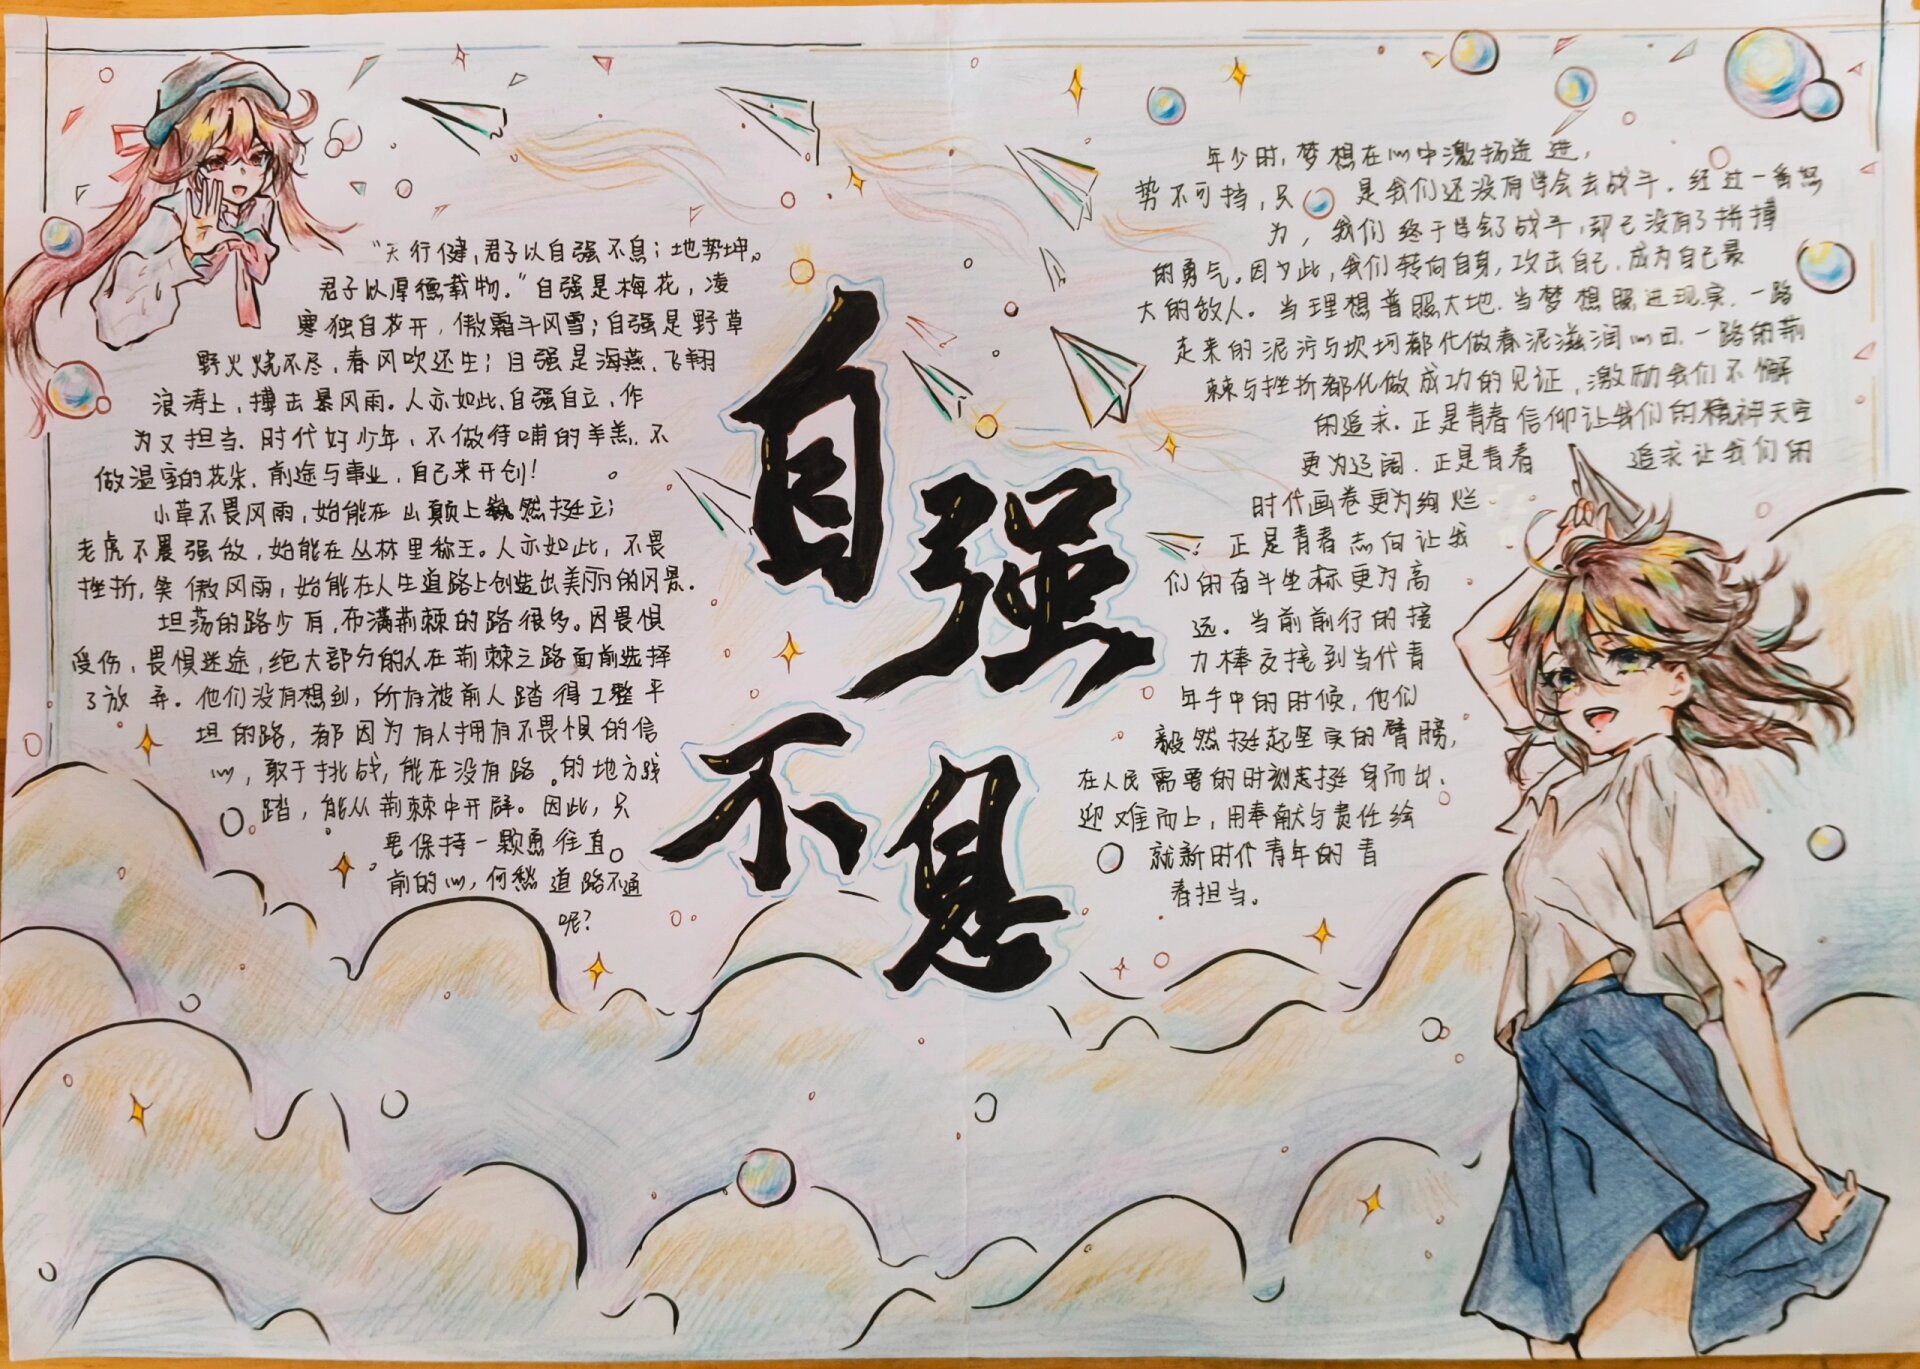 自强
不息
“天行健,君子以自强不息;地势坤。
君子以厚德载物。”自强是梅花,凌
寒独自花开,傲霜斗风雪;自强是野草
野火烧不尽,春风吹还生;自强是海燕,飞翔
浪涛上,搏击暴风雨。人亦如此,自强自立,作
为又担当。时代好少年,不做待哺的羊羔,不
做温室的花朵,前途与事业,自己来开创!
小草不畏风雨,始能在山颠上巍然挺立;
老虎不畏强敌,始能在丛林里称王。人亦如此,不畏
挫折,笑傲风雨,始能在人生道路上创造出美丽的风景。
坦荡的路少有,布满荆棘的路很多。因畏惧
受伤,畏惧迷途,绝大部分的人在荆棘之路面前选择
了放弃。他们没有想到,所有被前人踏得工整平
坦的路,都因为有人拥有不畏惧的信
心,敢于挑战,能在没有路的地方践
踏,能从荆棘中开辟。因此,只
要保持一颗勇往直
前的心,何愁道路不通
呢?
年少时,梦想在心中激扬迸进,
势不可挡,只是我们还没有学会去战斗。经过一番怒
为,我们终于学会了战斗,却已没有了拼搏
的勇气。因为此,我们转向自身,攻击自己,成为自己最
大的敌人。当理想普照大地,当梦想照进现实,一路
走来的泥泞与坎坷都化做春泥滋润心田,一路的荆
棘与挫折都化做成功的见证,激励我们不懈
的追求。正是青春信仰让我们的精神天空
更为辽阔。正是青春追求让我们的
时代画卷更为绚烂
正是青春志向让我
们的奋斗坐标更为高
远。当前前行的接
力棒交接到当代青
年手中的时候,他们
毅然挺起坚实的臂膀,
在人民需要的时刻挺身而出,
迎难而上,用奉献与责任绘
就新时代青年的青
春担当。